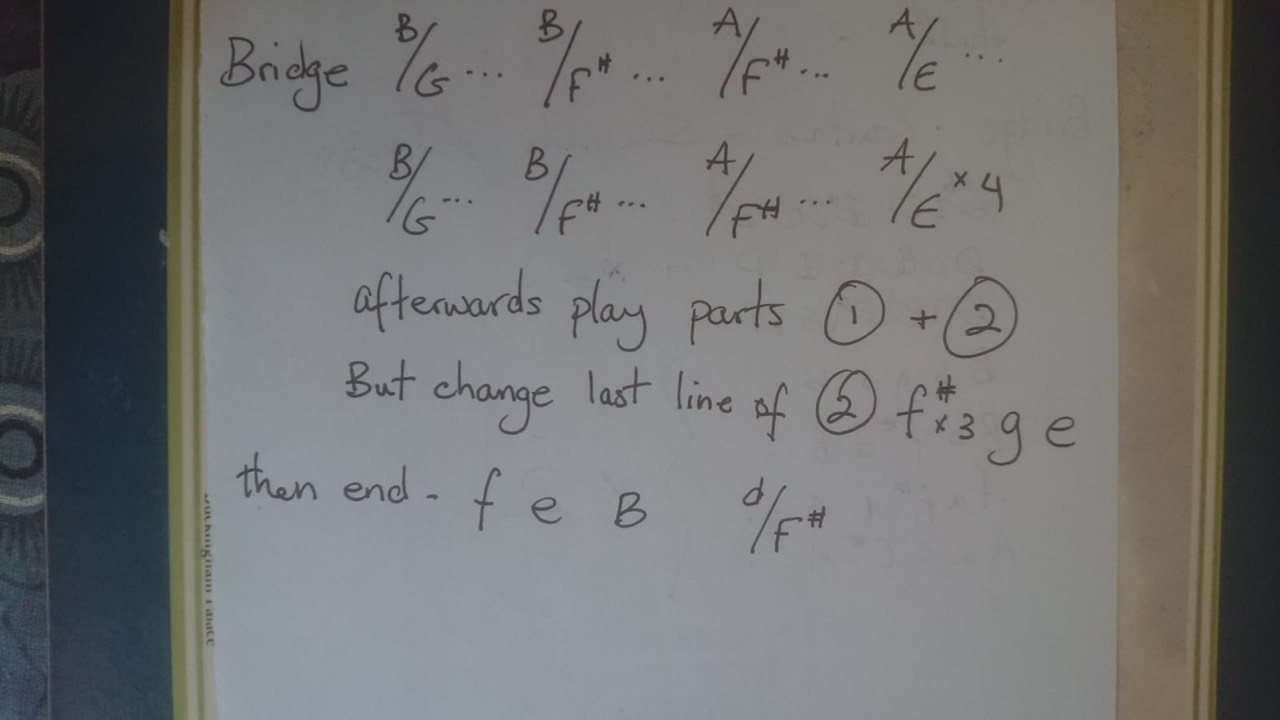 Bridge B/G ... B/F# ... A/F# ... A/E ...
B/G ... B/F# ... A/F# ... A/E x 4
afterwards play parts ① + ②
But change last line of ② f# x3 g e
then end - f e B d/F#
Buckingham Palace